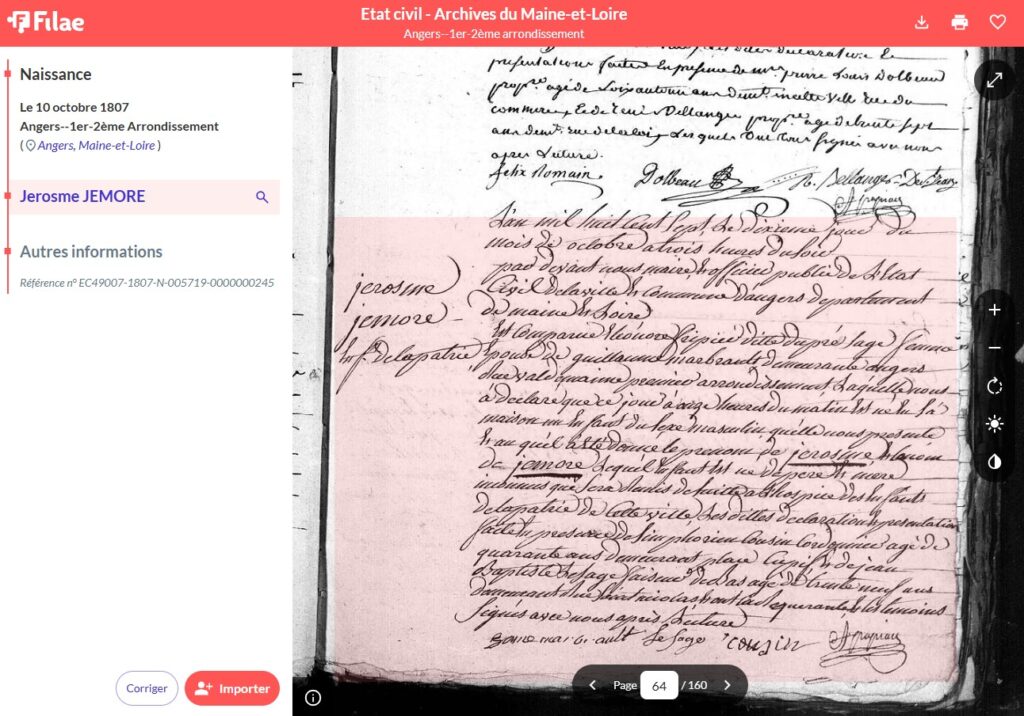 Filae
Etat civil - Archives du Maine-et-Loire
Angers--1er-2ème arrondissement
Naissance
Le 10 octobre 1807
Angers--1er-2ème Arrondissement
( Angers, Maine-et-Loire )
Jerosme JEMORE
Autres informations
Référence n° EC49007-1807-N-005719-0000000245
Corriger
Importer
présentation faites En présence de mr. pierre Louis Dolbeau
propre. agé de Soixante un ans demt. en cette Ville Rue du
commerce, Et de René Bellanger propre. agé de trente Sept
ans demt. Rue Lesquels ont tous Signés avec nous
apres Lecture.
felix Romain Dolbeau R. Bellanger
jerosme
jemore
Enft. de la patrie
L'an mil huit Cent Sept, Le dixieme jour du
mois de octobre a trois heures du Soir
par devant nous maire & officier public de L'Etat
Civil de la ville & Commune d'angers departement
de maine & Loire
Est Comparue Eléonore ditte dupré Sage femme
Epouse de guillaume marbrault demeurante angers
Rue valdemaine premier arrondissement, Laquelle nous
a déclaré que ce jour à onze heures du matin Est né En Sa
maison un Enfant du Sexe masculin qu'elle nous presente
Et au quel a été donné le prenom de jerosme Et le nom
de jemore, Lequel Enfant Est né de père & mère
inconnus que Sera Remis de Suitte a L'hospice des Enfants
de la patrie de Cette ville, Les dittes declaration & presentation
faites En presence de Simphorien Cousin Cordonnier agé de
quarante ans demeurant place Cupif & de jean
Baptiste Lesage faiseur de Bas agé de trente neuf ans
demeurant Rue Saint nicolas, ont la Requerante & les temoins
Signés avec nous après Lecture
Le Sage Cousin
Page 64 / 160